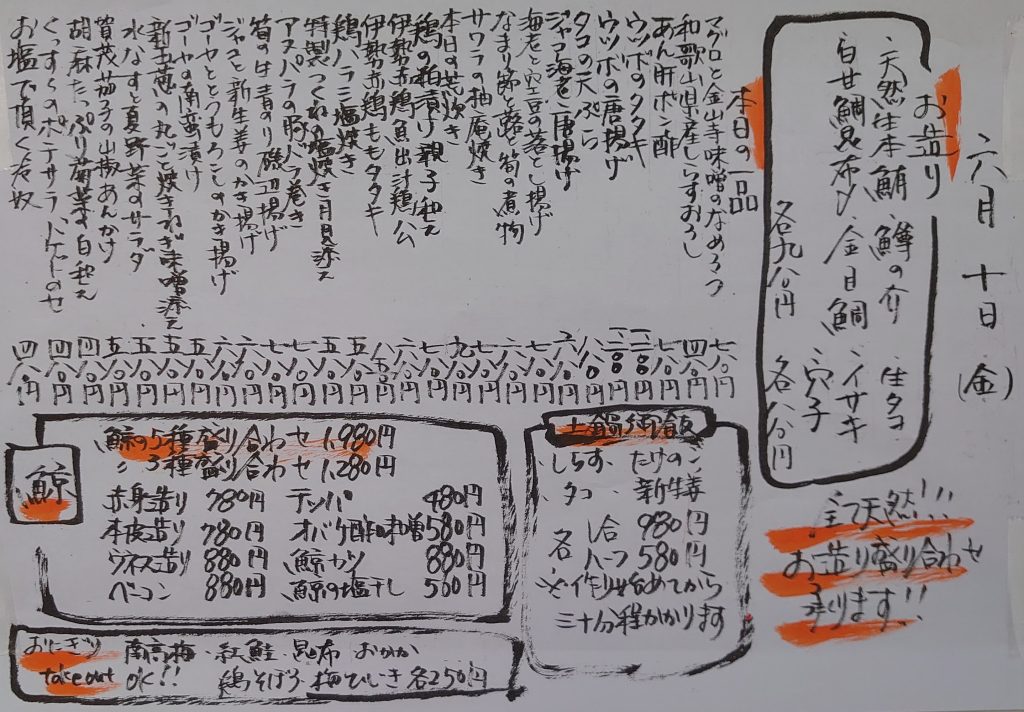 六月十日(金)
お造り
天然生本鮪 鱒の介 生タコ
白甘鯛昆布〆 金目鯛 イサキ 穴子
各九八〇円 各八八〇円
全て天然!!!
お造り盛り合わせ
承ります!!
本日の一品
マグロと金山寺味噌のなめろう 七八〇円
和歌山県産しらすおろし 四八〇円
あん肝ポン酢 七八〇円
ウツボのタタキ
ウツボの唐揚げ
タコの天ぷら
ジャコ海老唐揚げ
海老と空豆の落とし揚げ
なまり節と蕗と筍の煮物
サワラの柚庵焼き
本日の荒炊き
鶏の粕漬け親子和え
伊勢赤鶏魚出汁鶏公
伊勢赤鶏ももタタキ
鶏ハラミ塩焼き
特製つくねの塩焼き月見添え
アスパラの豚バラ巻き
筍の生青のり磯辺揚げ
ジャコと新生姜のかき揚げ
ゴーヤととうもろこしのかき揚げ
ゴーヤの南蛮漬け
新玉葱の丸ごと焼きねぎ味噌添え
水なすと夏野菜のサラダ
賀茂茄子の山椒あんかけ
胡麻たっぷり菊菜の白和え 四八〇円
くつすぅのポテサラバゲットのせ 四八〇円
お塩で頂く冷奴 四八〇円
土鍋御飯
しらす、たけのこ
タコ、新生姜
各 一合 980円
ハーフ 580円
※作り始めてから
三十分程かかります
鯨
鯨の5種盛り合わせ 1,980円
〃 3種盛り合わせ 1,280円
赤身造り 780円 テッパ 480円
本皮造り 780円 オバケ酢味噌 580円
ウネス造り 880円 鯨カツ 880円
ベーコン 880円 鯨の塩干し 580円
おにぎり 南高梅・紅鮭・昆布 おかか
takeout OK!! 鶏そぼろ 梅ひじき 各250円